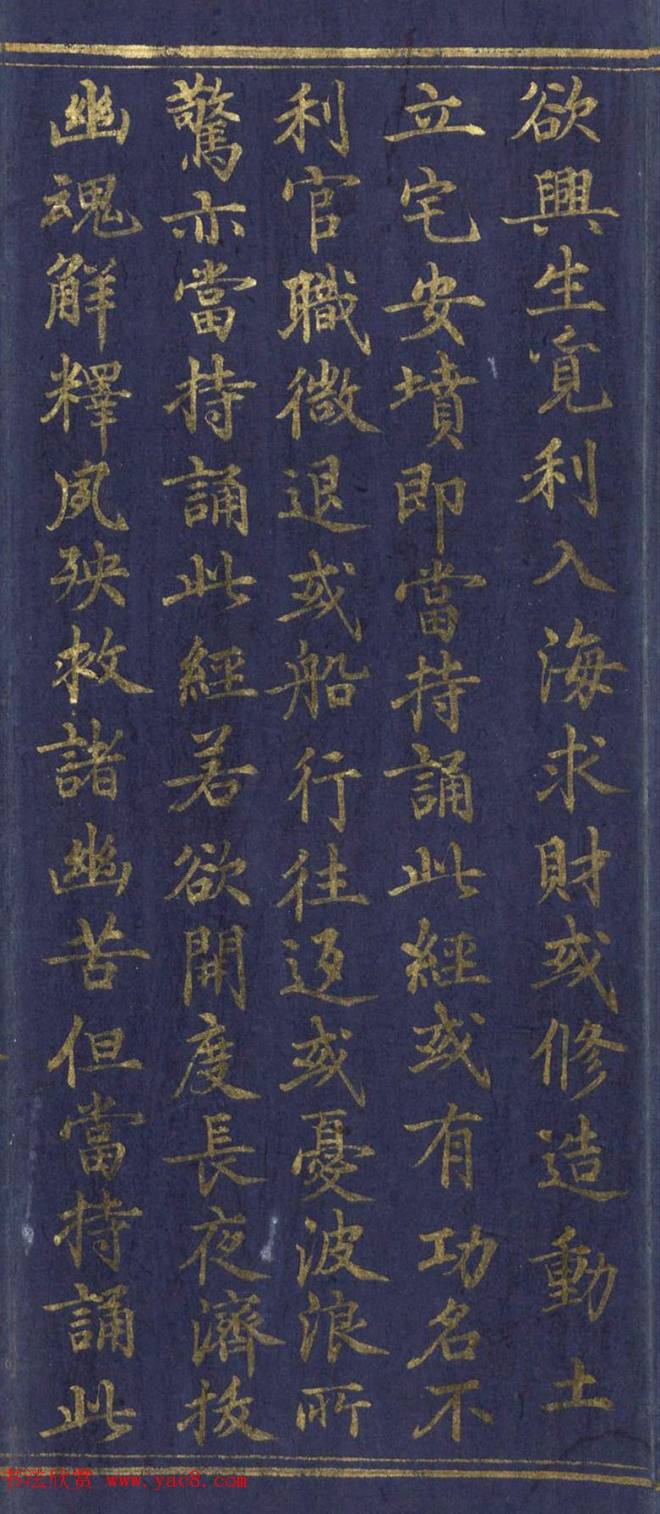 欲興生寛利入海求財或修造動土
立宅安墳即當持誦此經或有功名不
利官職微退或船行往返或憂波浪所
驚亦當持誦此經若欲開度長夜濟拔
幽魂解釋夙殃救諸幽苦但當持誦此
书法欣赏 www.yac8.com